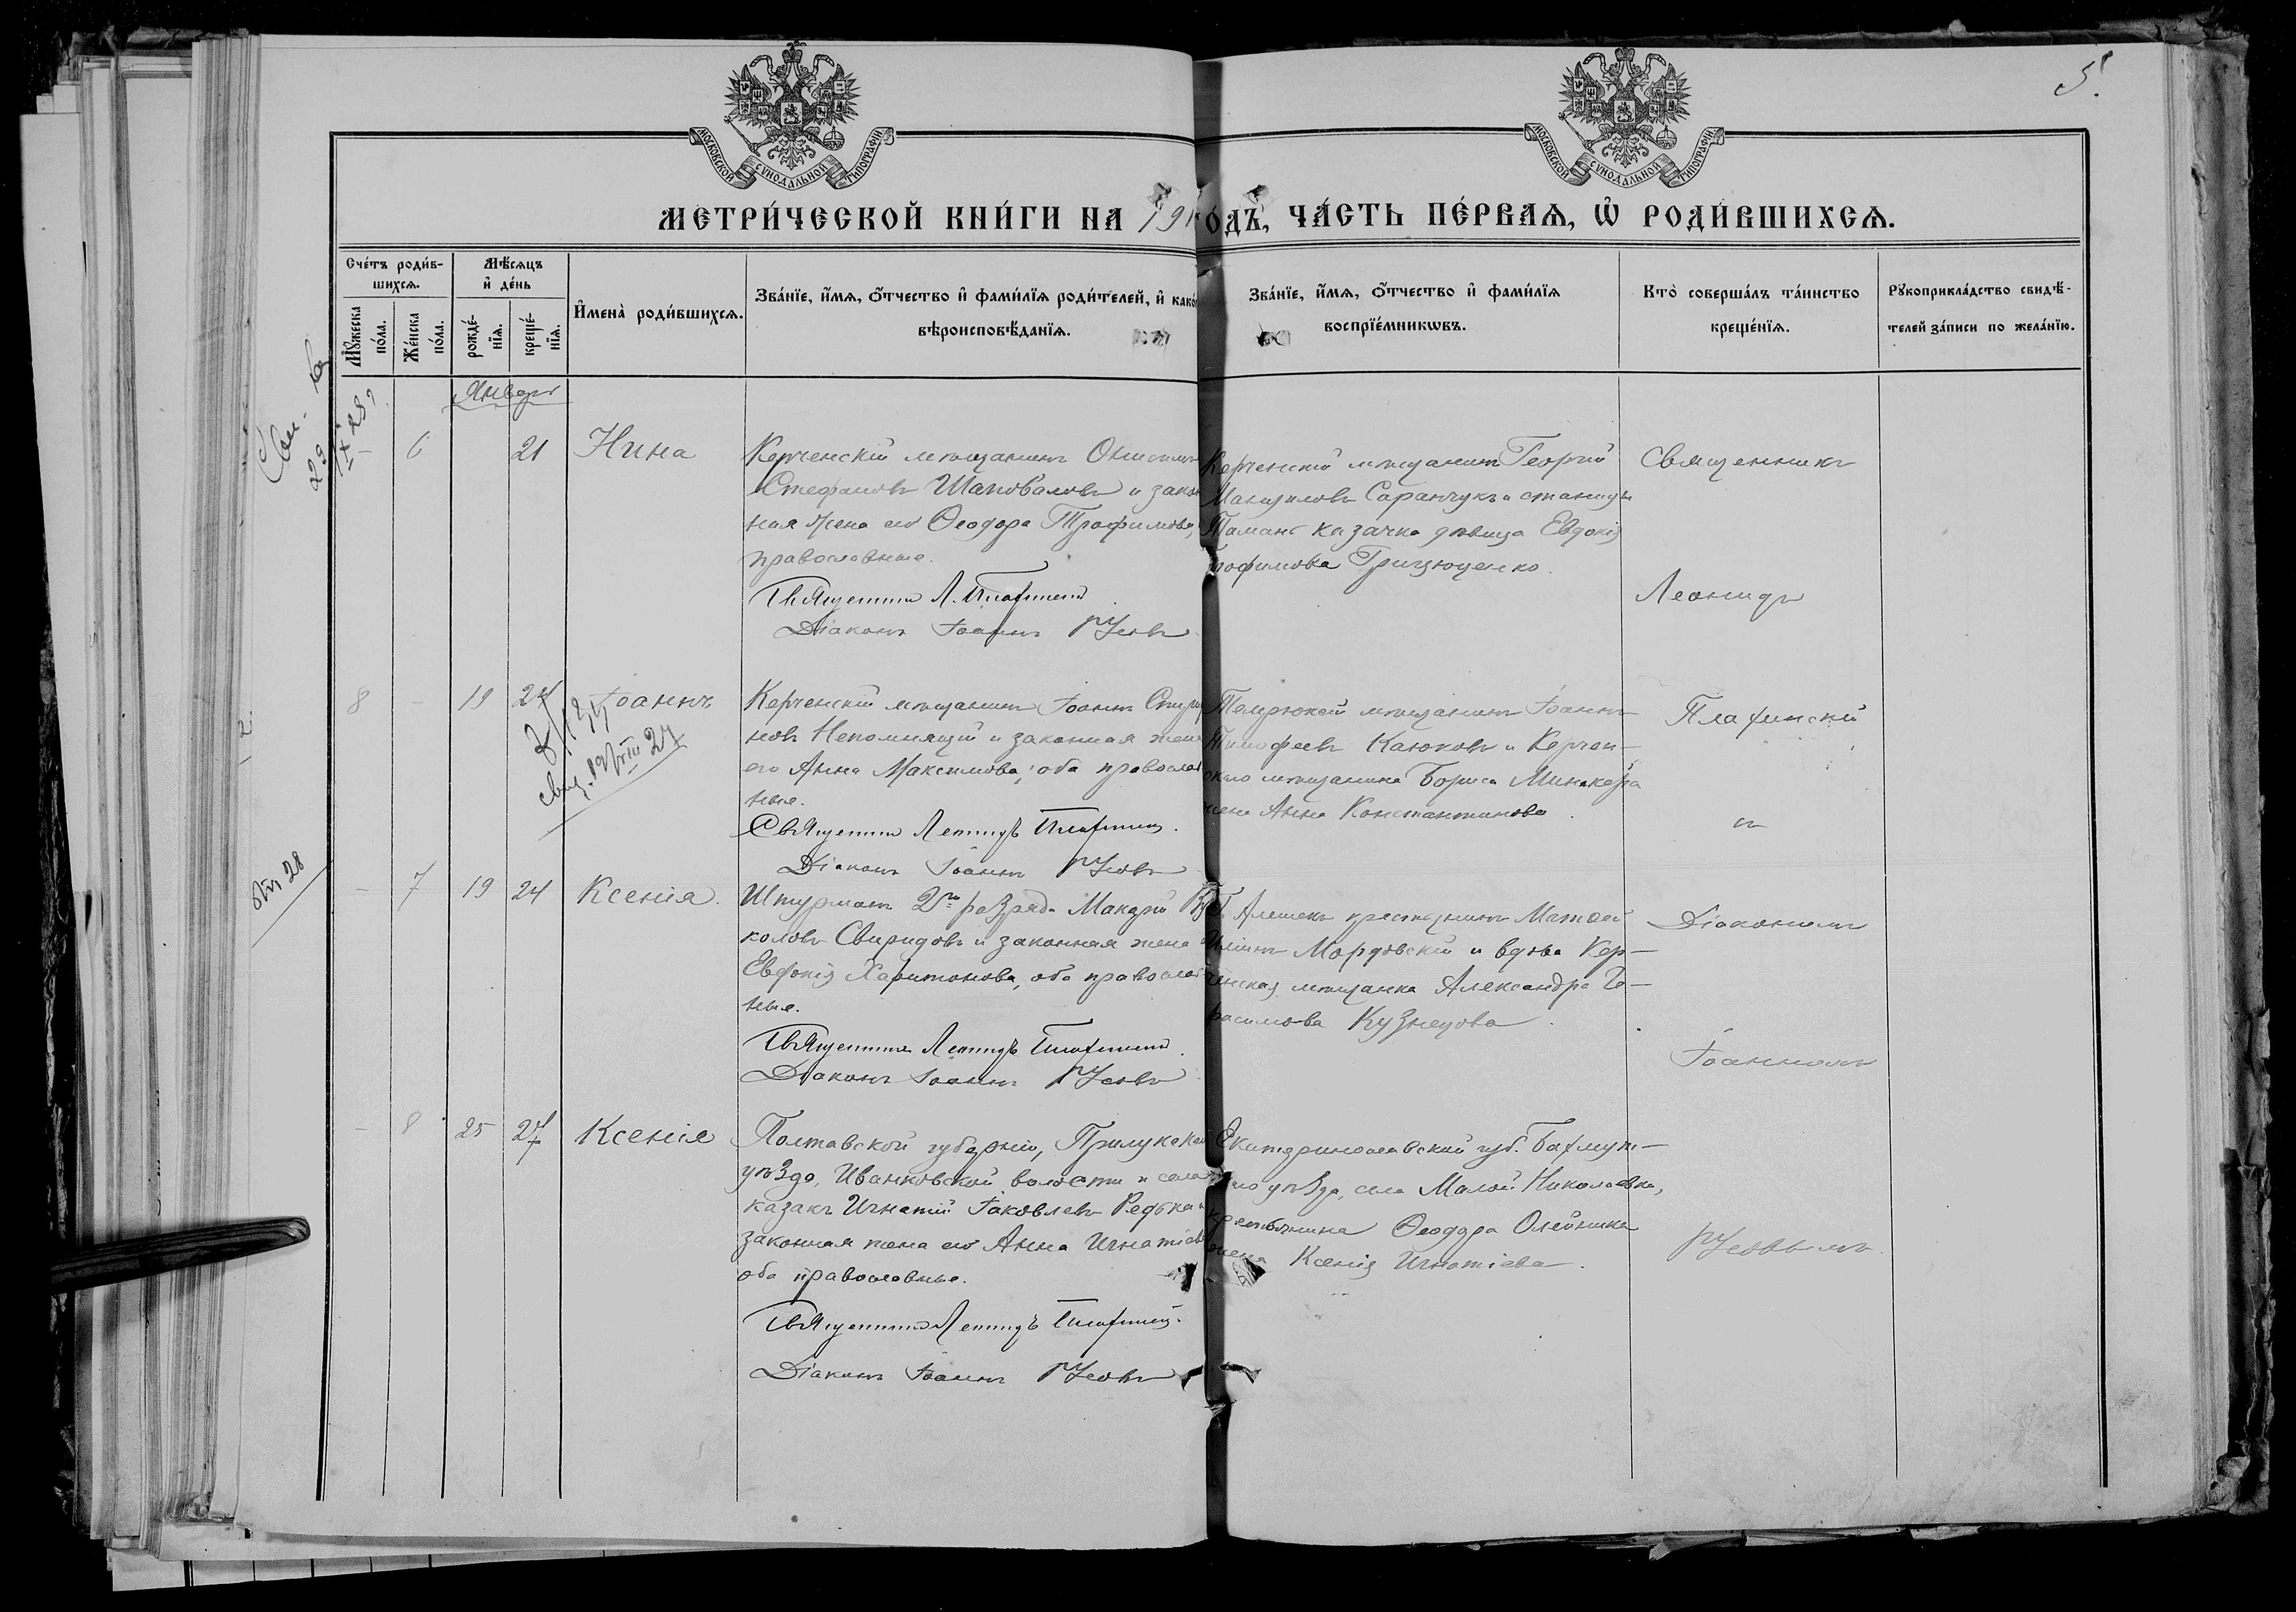 5.
МОСКОВСКОЙ СѴНОДАЛЬНОЙ ТИПОГРАФІИ
МОСКОВСКОЙ СѴНОДАЛЬНОЙ ТИПОГРАФІИ
МЕТРИ́ЧЕСКОЙ КНИ́ГИ НА 191 О́ДЪ, ЧА́СТЬ ПЕ́РВАѦ, Ѡ҆ РОДИ́ВШИХСѦ.
Сче́тъ роди́в-
шихсѧ.
Мꙋ́жеска по́ла.
Же́нска по́ла.
Мѣ́сѧцъ
и҆ де́нь
рожде́-
нїѧ.
креще́-
нїѧ.
И҆мена̀ роди́вшихсѧ.
Зва́нїе, и҆́мѧ, ѻ҆́тчество и҆ фами́лїѧ роди́телей, и҆ како́
вѣроисповѣ́данїѧ.
Зва́нїе, и҆́мѧ, ѻ҆́тчество и҆ фами́лїѧ
воспрїе́мникѡвъ.
Кто̀ соверша́лъ та́инство
креще́нїѧ.
Рꙋкоприкла́дство свидѣ́-
телей за́писи по жела́нїю.
Январь
- 6 21 Нина
Керченскій мѣщанинъ
Стефановъ Шаповаловъ и закон
ная жена его Ѳеодора Трофимова,
православные.
Священникъ Л.
Діаконъ Іоаннъ Русовъ
Керченскій мѣщанинъ Георгій
Саранчукъ и станицы
Тамань казачка дѣвица Евдокія
Трофимова Грицюценко.
8 - 19 27 Іоаннъ
Керченскій мѣщанинъ Іоаннъ
новъ Непомнящій и законная жена
его Анна Максимова, оба православ
ные.
Священникъ Леонидъ
Діаконъ Іоаннъ Русовъ
Темрюкскій мѣщанинъ Іоаннъ
Тимофеевъ Каюковъ и Керчен-
скаго мѣщанина Бориса
жена Анна Константинова.
- 7 19 24 Ксенія.
Штурманъ 2го разряда
коловъ Свиридовъ и законная жена
Евфокія Харитонова, оба православ
ные.
Священникъ Леонидъ
Діаконъ Іоаннъ Русовъ
Г. Алешекъ крестьянинъ Матѳей
Мордовскій и вдова Кер-
ченская мѣщанка Александра Ге-
расимова Кузнецова.
- 8 25 27 Ксенія
Полтавской губерніи, Прилукскаго
уѣзда, Иванковской волости и села
казакъ Игнатій Іаковлевъ Редька и
законная жена его Анна Игнатіева
оба православные.
Священникъ Леонидъ
Діаконъ Іоаннъ Русовъ
Екатеринославской губ. Бахмут-
скаго уѣзда, села Малой Николаевка,
крестьянина Ѳеодора Олейника
жена Ксенія Игнатіева.
Священникъ
Леонидъ
Плахинскій
и
Діакономъ
Іоанномъ
Русовымъ.